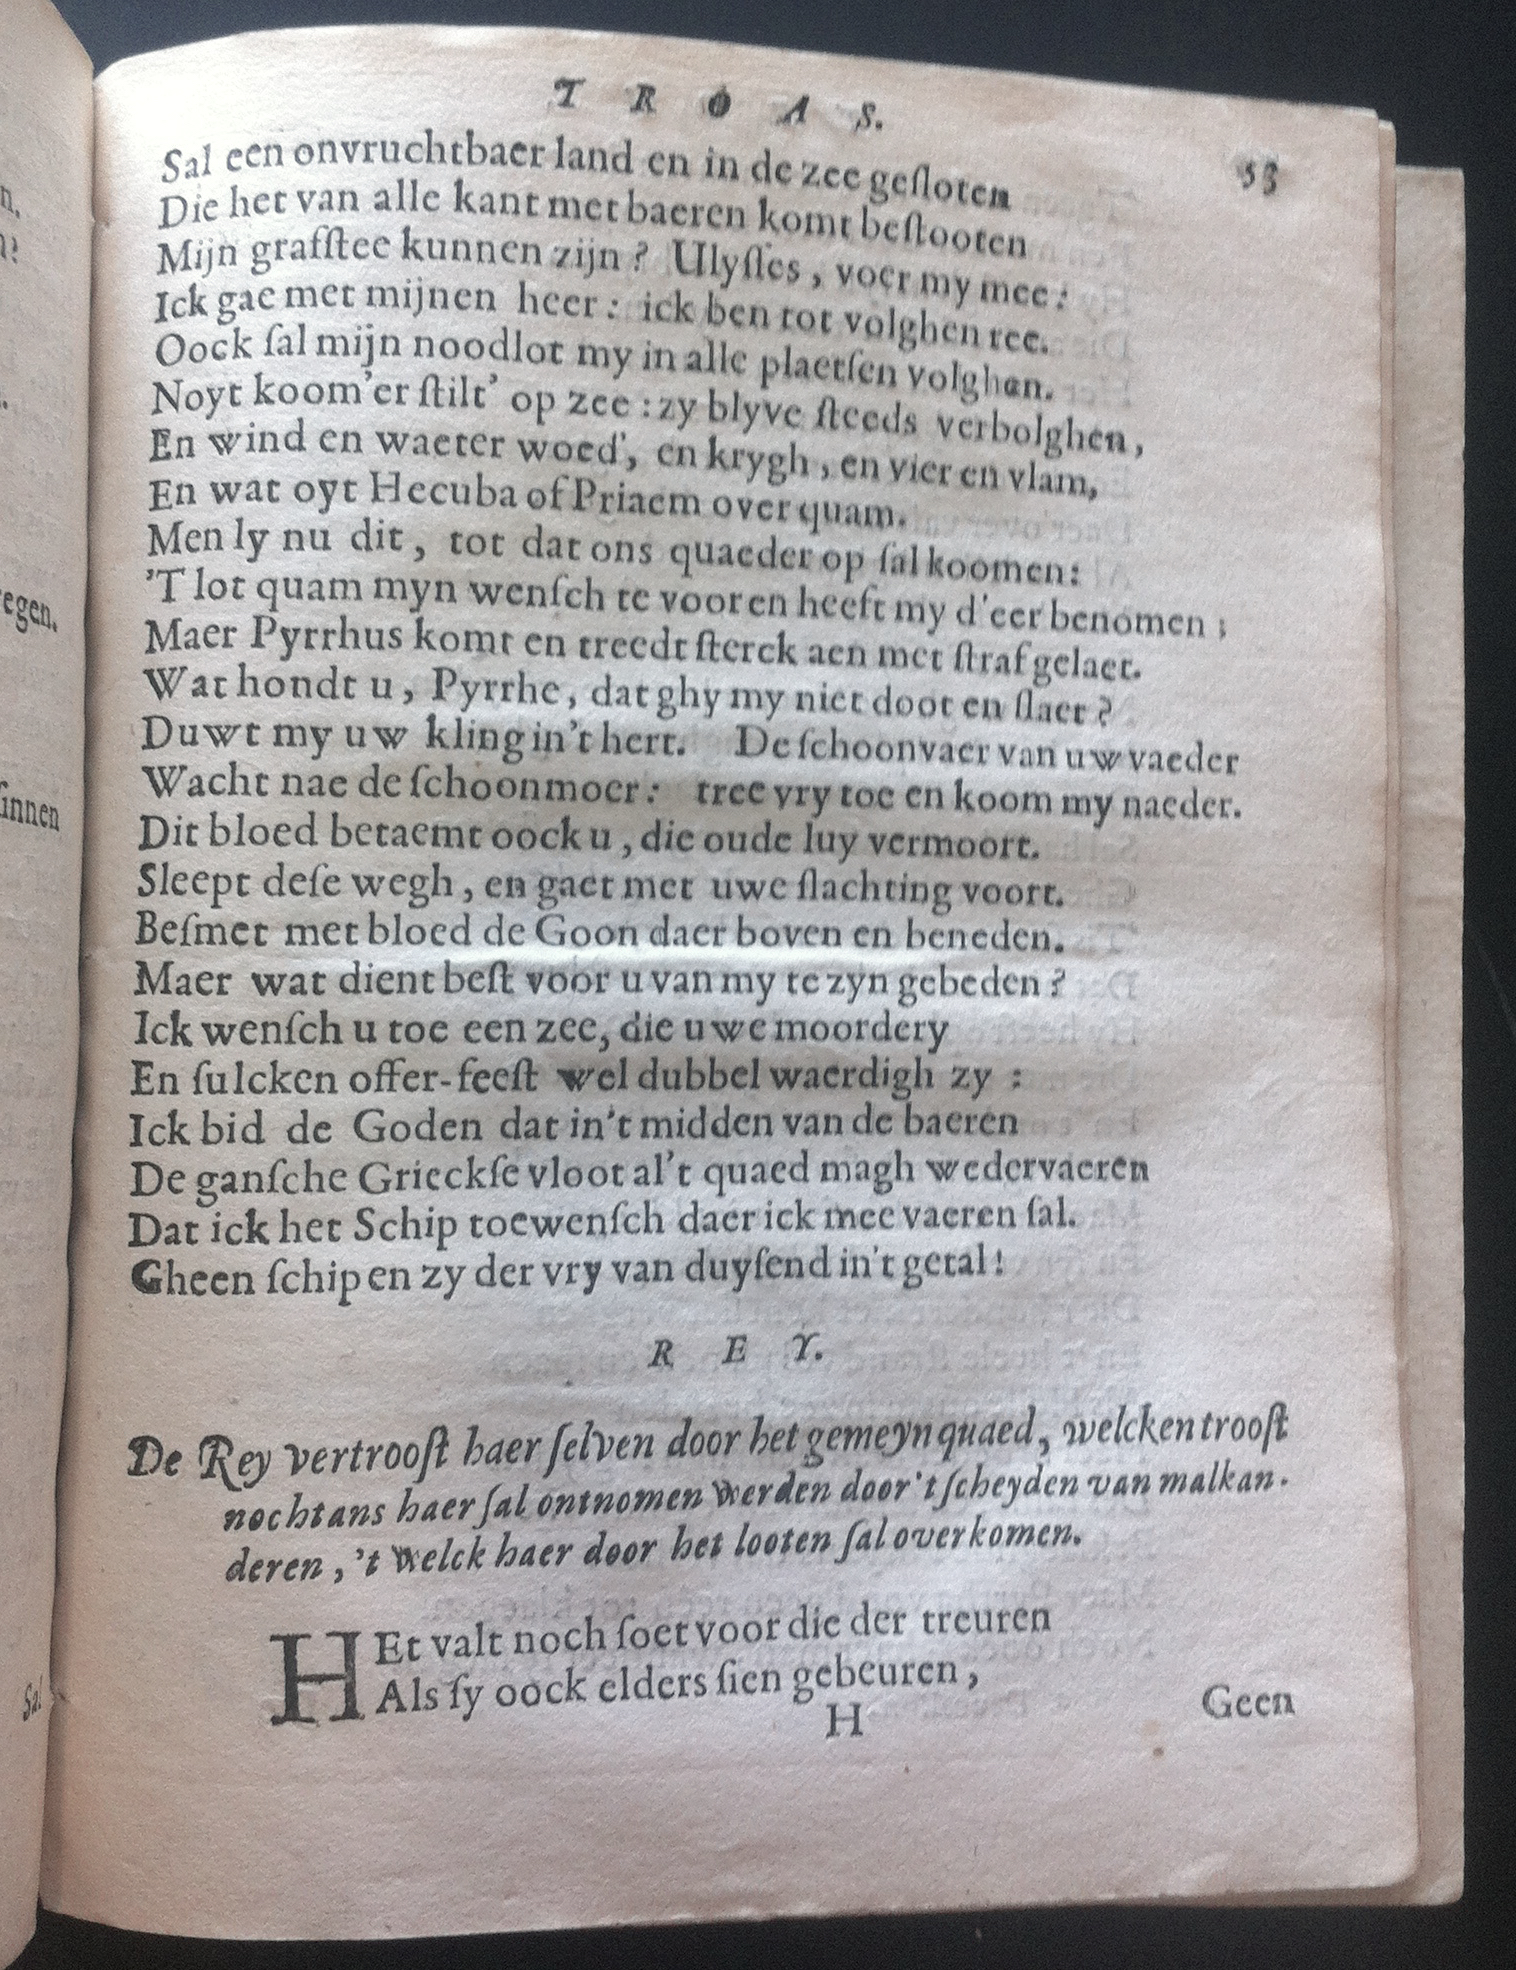 T R O A S.
53
Sal een onvruchtbaer land en in de zee geſloten
Die het van alle kant met baeren komt beſtooten
Mijn grafſtee kunnen zijn? Ulyſſes, voer my mee:
Ick gae met mijnen heer: ick ben tot volghen ree.
Oock ſal mijn noodlot my in alle plaetſen volghen.
Noyt koom'er ſtilt' op zee: zy blyve ſteeds verbolghen,
En wind en waeter woed', en krygh, en vier en vlam,
En wat oyt Hecuba of Priaem over quam.
Men ly nu dit, tot dat ons quaeder op ſal koomen:
'T lot quam myn wenſch te vooren heeft my d'eer benomen;
Maer Pyrrhus komt en treedt ſterck aen met ſtraf gelaet.
Wat hondt u, Pyrrhe, dat ghy my niet doot en ſlaet?
Duwt my uw kling in't hert. De ſchoonvaer van uw vaeder
Wacht nae de ſchoonmoer: tree vry toe en koom my naeder.
Dit bloed betaemt oock u, die oude luy vermoort.
Sleept deſe wegh, en gaet met uwe ſlachting voort.
Beſmet met bloed de Goon daer boven en beneden.
Maer wat dient beſt voor u van my te zyn gebeden?
Ick wenſch u toe een zee, die uwe moordery
En ſulcken offer-feeſt wel dubbel waerdigh zy:
Ick bid de Goden dat in't midden van de baeren
De ganſche Grieckſe vloot al't quaed magh wedervaeren
Dat ick het Schip toewenſch daer ick mee vaeren ſal.
Gheen ſchip en zy der vry van duyſend in't getal!
R E Y.
De Rey vertrooſt haer ſelven door het gemeyn quaed, welcken trooſt
nochtans haer ſal ontnomen werden door't ſcheyden van malkan-
deren, 't welck haer door het looten ſal overkomen.
HEt valt noch ſoet voor die der treuren
Als ſy oock elders ſien gebeuren,
H
Geen
n.
egen.
ſinnen
Sal